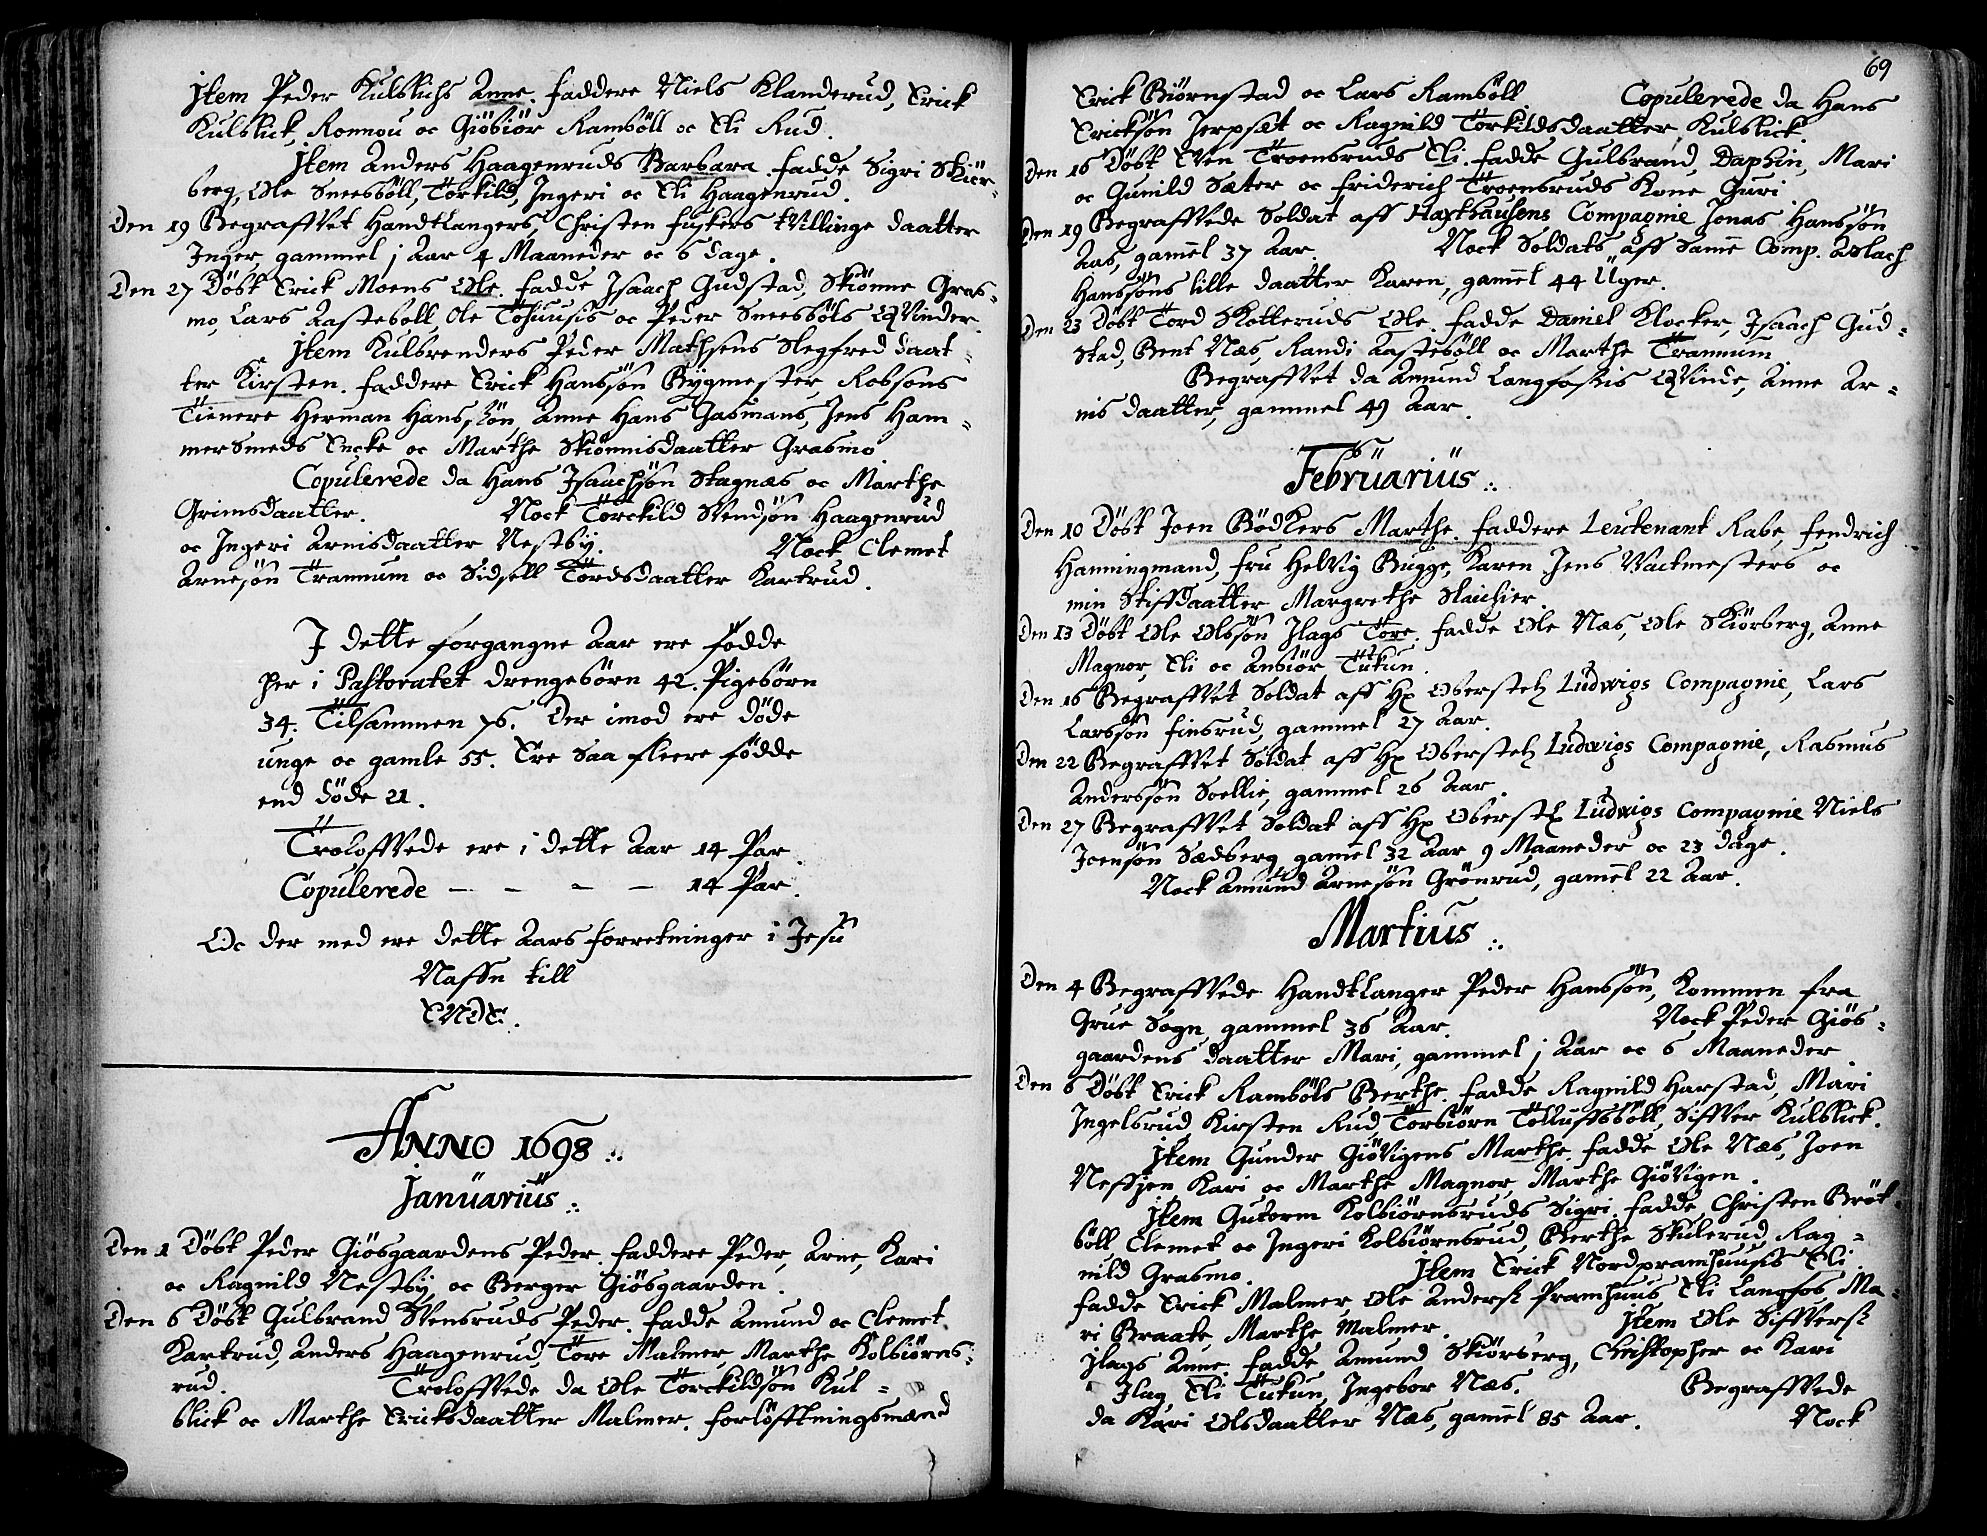 Jtem Peder Kulblichs Anne. faddere Niels Klanderud, Erick
Kulblick, Ronnou oc Giöbiör Ramböll oc Eli Rud.
Jtem Anders Haagenruds Barbara. fadde Sigri Skiör-
berg, Ole Sneesböll, Törkild, Jngeri oc Eli Haagenrud.
Den 19 Begraffvet Handtlangers, Christen fuskers tvillinge daatter
Jnger, gammel j Aar 4 Maaneder oc 6 dage.
Den 27 Döbt Erick Moens Ole. fadde Jsaach Gudstad, Skiönne Gras-
mo, Lars Aasteböll, Ole Töhuusis oc Peder Sneesböls Qvinder.
Jtem Kulbrenders Peder Mathsens Slegfred daat-
ter Kirsten. faddere Erick Hanssön Bÿgmester, Robsons
Tienere Herman Hanssön, Anne Hans Gasmans, Jens Ham-
mersmeds Encke oc Marthe Skiönnisdaatter Grasmo
Copulerede da Hans Jsaachsön Skagnæs oc Marthe
Grimsdaatter. Nock Törckild Svendsön Haagenrud
oc Jngeri Arnisdaatter Nestbÿ. Nock Clemet
Arnesön Trannum oc Sidsell Tördsdaatter Kartrud.
J dette forgangne Aar ere födde
her i Pastoratet drengebörn 42. Pigebörn
34. Tilsammen 76. Der imod ere döde
unge oc gamle 55. Ere saa fleere födde
end döde 21.
Troloffvede ere i dette Aar 14 Par.
Copulerede - - - - 14 Par.
Oc der med ere dette Aars forretninger i Jesu
Naffn till
ENDE.
ANNO 1698
Januarius
Den 1 Döbt Peder Giösgaardens Peder. faddere Peder, Arne, Kari
oc Ragnild Nestbÿ, oc Berger Giösgaarden.
Den 6 Döbt Gulbrand Svensruds Peder. fadde Amund oc Clemet
Kartrud, Anders Haagenrud, Töre Malmer, Marthe Kolbiörns-
rud. Troloffvede da Ole Törckildsön Kul-
blick oc Marthe Ericksdaatter Malmer. forlöfftningsmænd
69
Erick Biörnstad oc Lars Ramböll Copulerede da Hans
Ericksön Jerpset oc Ragnild Törkildsdaatter Kulblick.
Den 16 Döbt Even Troensruds Eli. fadde Gulbrand, Daphin, Mari
oc Gunild Sæter oc friderich Troensruds Kone Guri
Den 19 Begraffvede Soldat aff Haxthausens Compagnie Jonas Hanssön
Aas, gamel 37 Aar. Nock Soldats aff samme Comp. Aslach
Hanssöns lille daatter Karen, gamel 44 Uger.
Den 23 Döbt Tord Skotteruds Ole. fadde Daniel Klocker, Jsaach Gud-
stad, Bent Næs, Randi Aasteböll oc Marthe Trannum
Begraffvet da Amund Langfossis Qvinde, Anne Ar-
nis daatter, gammel 49 Aar.
Februarius
Den 10 Döbt Joen Bödkers Marthe. faddere Leutenant Rabe, fendrich
Hanningmand, fru Helvig Bugge, Karen Jens Vactmesters oc
min Stiffdaatter Margrethe Slaichier.
Den 13 Döbt Ole Olssön Jlags Töre. fadde Ole Næs, Ole Skiörberg, Anne
Magnor, Eli oc Anbiör Tukun.
Den 16 Begraffvet Soldat aff Hr Oberstel Ludwigs Compagnie, Lars
Larssön finsrud, gammel 27 Aar.
Den 22 Begraffvet Soldat aff Hr Oberstel Ludwigs Compagnie, Rasmus
Anderssön Soellie, gammel 26 Aar.
Den 27 Begraffvet Soldat aff Hr Oberstl Ludwigs Compagnie Niels
Joensön Sædberg gamel 32 Aar 9 Maaneder oc 23 dage.
Nock Amund Arnesön Grönrud, gamel 22 Aar.
Martius
Den 4 Begraffvede Handtlanger Peder Hanssön, kommen fra
Grue Sogn, gammel 36 Aar. Nock Peder Giös-
gaardens daatter Mari, gammel j Aar oc 6 Maaneder
Den 6 Döbt Erick Ramböls Berthe. fadde Ragnild Harstad, Mari
Jngelsrud, Kirsten Rud, Törbiörn Tölluffsböll, Siffver Kulblick.
Jtem Gunder Giövigens Marthe. fadde Ole Næs, Joen
Nefsjen Kari oc Marthe Magnor, Marthe Giövigen.
Jtem Gutorm Kolbiörnsruds Sigri. fadde Christen Bröt-
böll, Clemet oc Jngeri Kolbiörnsrud, Berthe Skulerud, Rag-
nild Grasmo. Jtem Erick Nordpramhuusis Eli.
fadde Erick Malmer, Ole Anders Pramhuus, Eli Langfos, Ma-
ri Braate, Marthe Malmer. Jtem Ole Siffvers
Jlags Anne. fadde Amund Skiörberg, Christopher oc Kari
Jlag Eli Tukun, Jngebor Næs. Begraffvede
da Kari Olsdaatter Næs, gamel 85 Aar. Nock